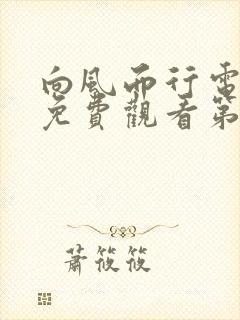 向風而行電
免費觀看第
蕭筱筱